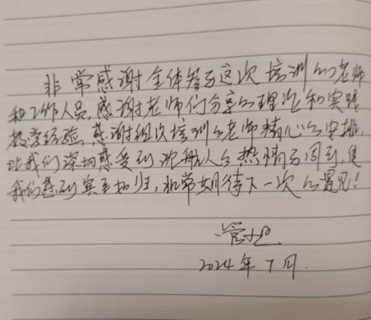 非常感谢全体参与这次培训的老师
和工作人员，感谢老师们分享的理论和实践
教学经验，感谢组织培训的老师精心的安排，
让我们深切感受到沈阳人的热情与周到，使
我们感到宾至如归，非常期待下一次的遇见！
2024年7月.